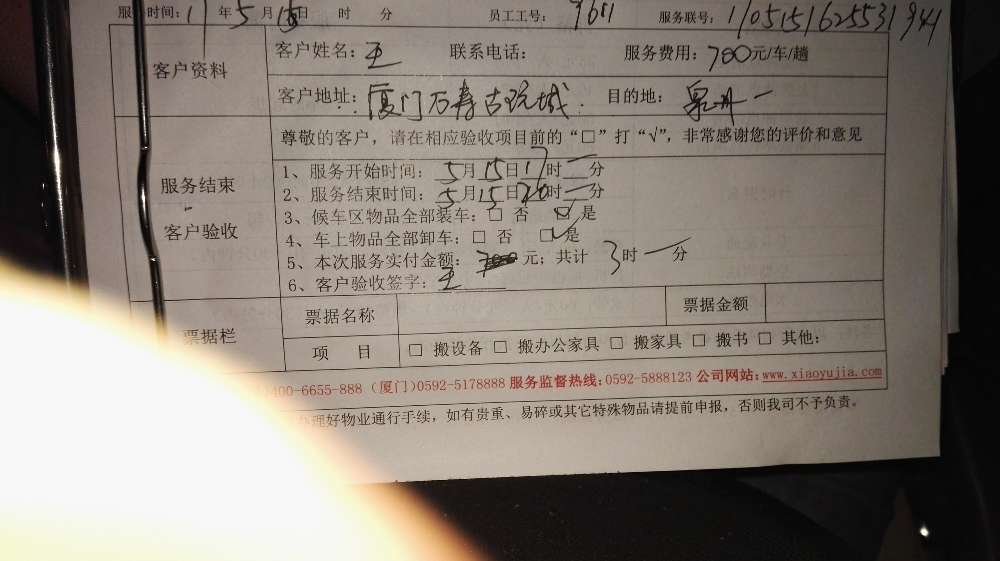 服务时间：11 年 5 月 15 日 时 分 员工工号：9611 服务联号：11051516255319441
客户资料
客户姓名：王 联系电话： 服务费用：700元/车/趟
客户地址：厦门万寿古玩城 目的地：泉州一
服务结束
客户验收
尊敬的客户，请在相应验收项目前的“□”打“√”，非常感谢您的评价和意见
1、服务开始时间：5月15日17时一分
2、服务结束时间：5月15日20时一分
3、候车区物品全部装车：□ 否 ☑是
4、车上物品全部卸车：□ 否 ☑是
5、本次服务实付金额：700元；共计 3时一分
6、客户验收签字：王
票据栏
票据名称 票据金额
项 目 □ 搬设备 □ 搬办公家具 □ 搬家具 □ 搬书 □ 其他：
400-6655-888（厦门）0592-5178888 服务监督热线：0592-5888123 公司网站：www.xiaoyujia.com
理好物业通行手续，如有贵重、易碎或其它特殊物品请提前申报，否则我司不予负责。